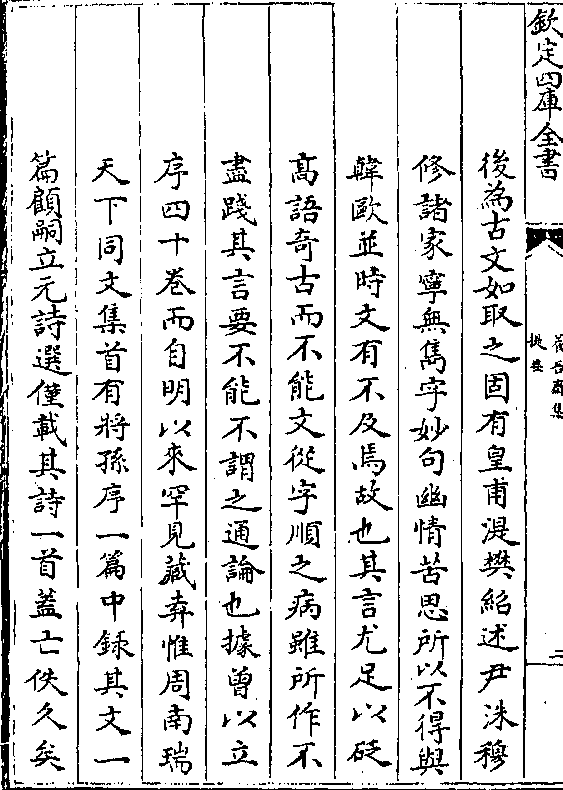 欽定四庫全書
養吾齋集
提要
二
後為古文如取之固有皇甫湜樊紹述尹洙穆
修諸家寧無雋字妙句幽情苦思所以不得與
韓歐並時文有不及焉故也其言尤足以砭
髙語奇古而不能文從字順之病雖所作不
盡踐其言要不能不謂之通論也據曾以立
序四十卷而自明以來罕見藏弆惟周南瑞
天下同文集首有將孫序一篇中録其文一
篇顧嗣立元詩選僅載其詩一首蓋亡佚久矣